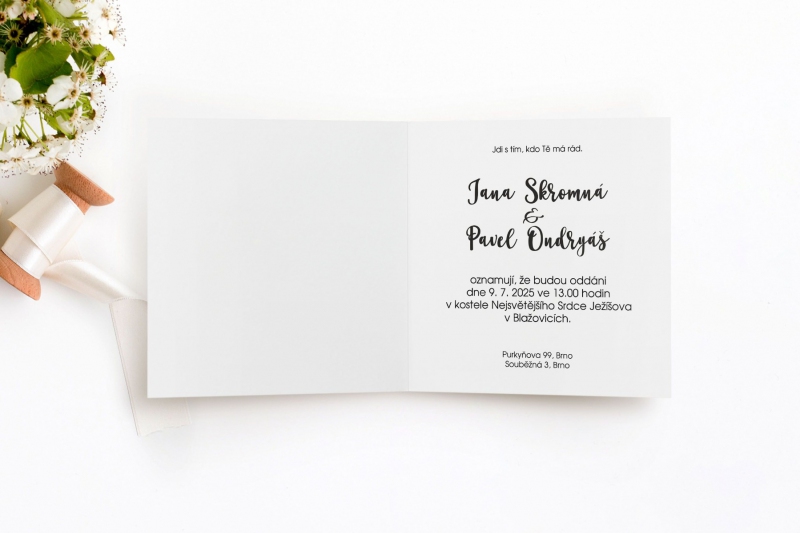 Jdi s tím, kdo Tě má rád.
Jana Skromná
&
Pavel Ondryáš
oznamují, že budou oddáni
dne 9. 7. 2025 ve 13.00 hodin
v kostele Nejsvětějšího Srdce Ježíšova
v Blažovicích.
Purkyňova 99, Brno
Souběžná 3, Brno